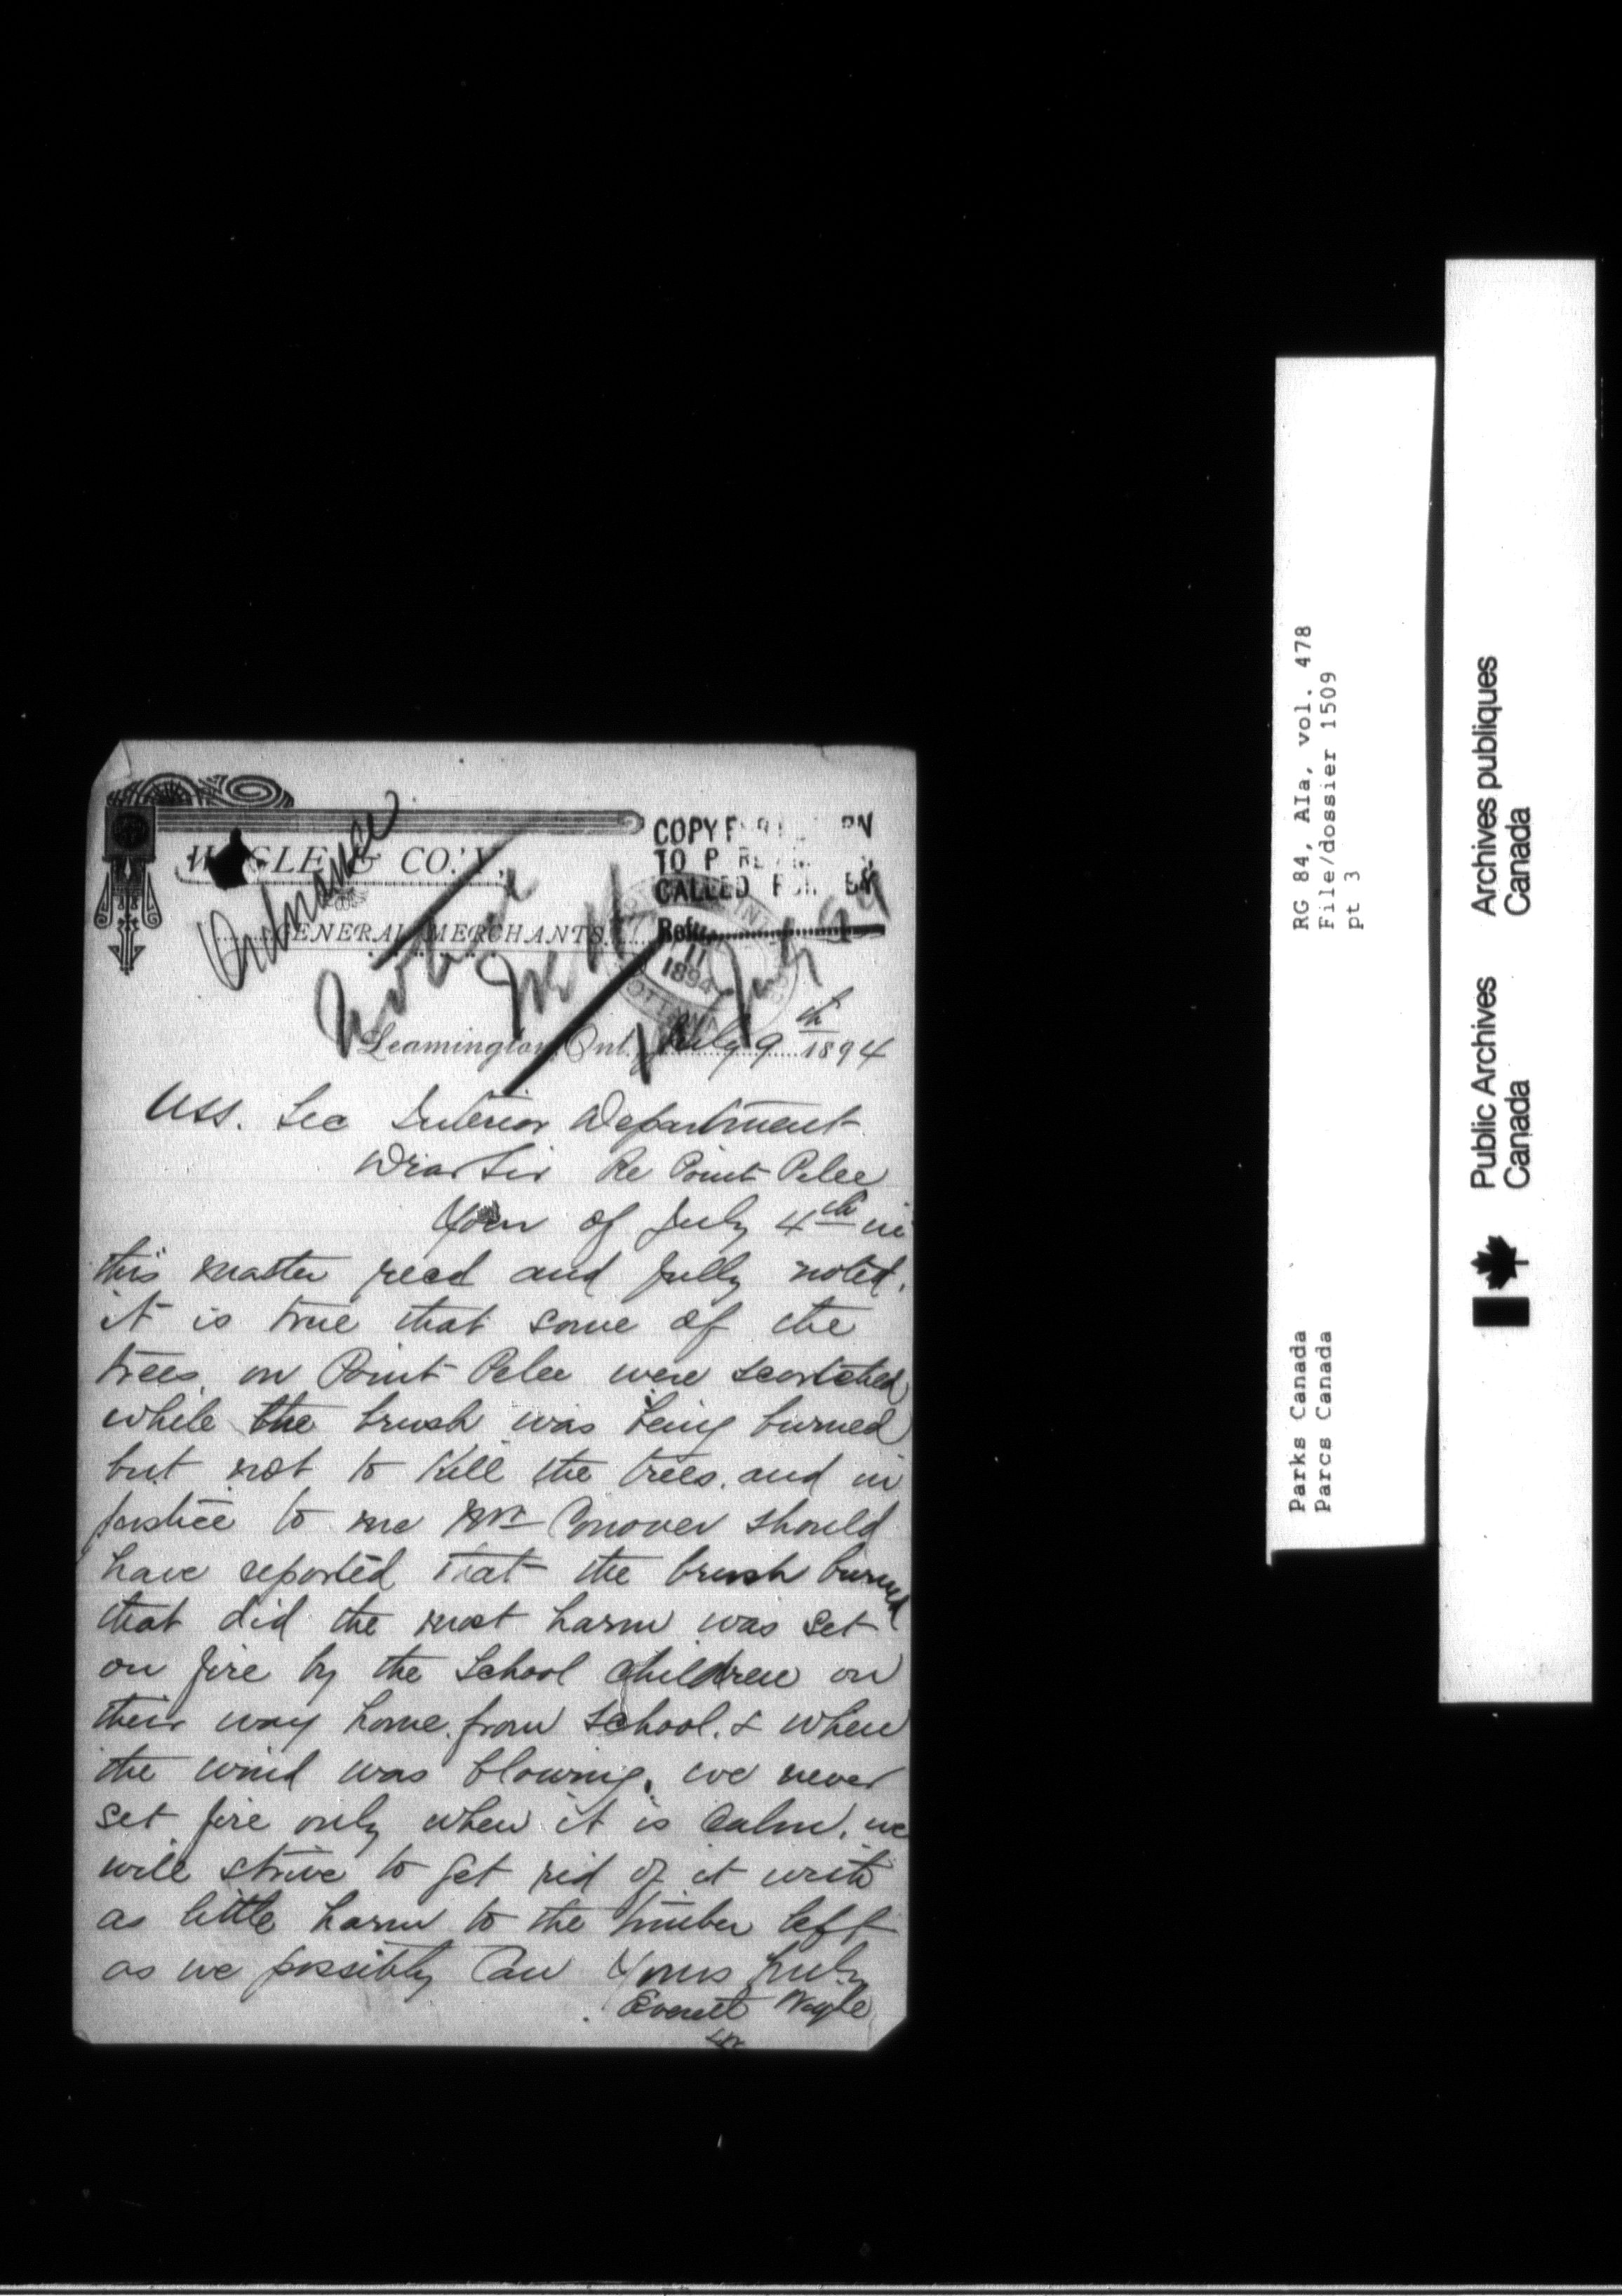 WIGLE & CO'Y,
GENERAL MERCHANTS.
Ordnance
COPY FOR RETURN
TO P
CALLED FOR BY
Refce
11
1894
OTTAWA
Leamington, Ont., July 9th 1894
Ass. Sec Interior Department
Dear Sir Re Point Pelee
Your of July 4th in
this matter recd and fully noted.
it is true that some of the
trees on Point Pelee were scortched
while the brush was being burned
but not to kill the trees. and in
justice to me Mr Conover should
have reported that the brush burned
that did the most harm was set
on fire by the school children on
their way home from school. & when
the wind was blowing. we never
set fire only when it is calm. we
will strive to get rid of it with
as little harm to the timber left
as we possibly can Yours truly
Everett Wigle
RG 84, AIa, vol. 478
File/dossier 1509
pt 3
Parks Canada
Parcs Canada
Public Archives Archives publiques
Canada Canada